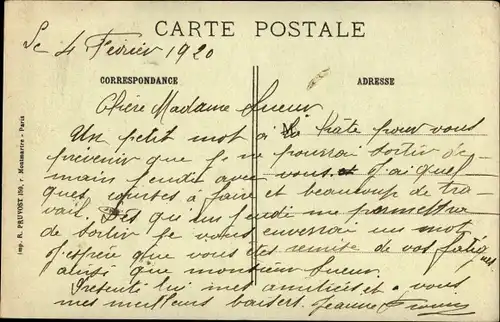 CARTE POSTALE
Le 4 Février 1920
CORRESPONDANCE
ADRESSE
Chère Madame Sueur
Un petit mot à la hâte pour vous
prevenir que je ne pourrai sortir de-
main jeudi avec vous et j'ai quel
ques courses à faire et beaucoup de tra
vail. Dès que un jeudi me permettra
de sortir je vous enverrai un mot
J'espère que vous êtes remise de vos fatig
ues
ainsi que monsieur Sueur.
Presenté lui mes amitiées et a vous
mes meilleurs baisers. Jeanne
Imp. R. PRUVOST 159, r. Montmartre - Paris